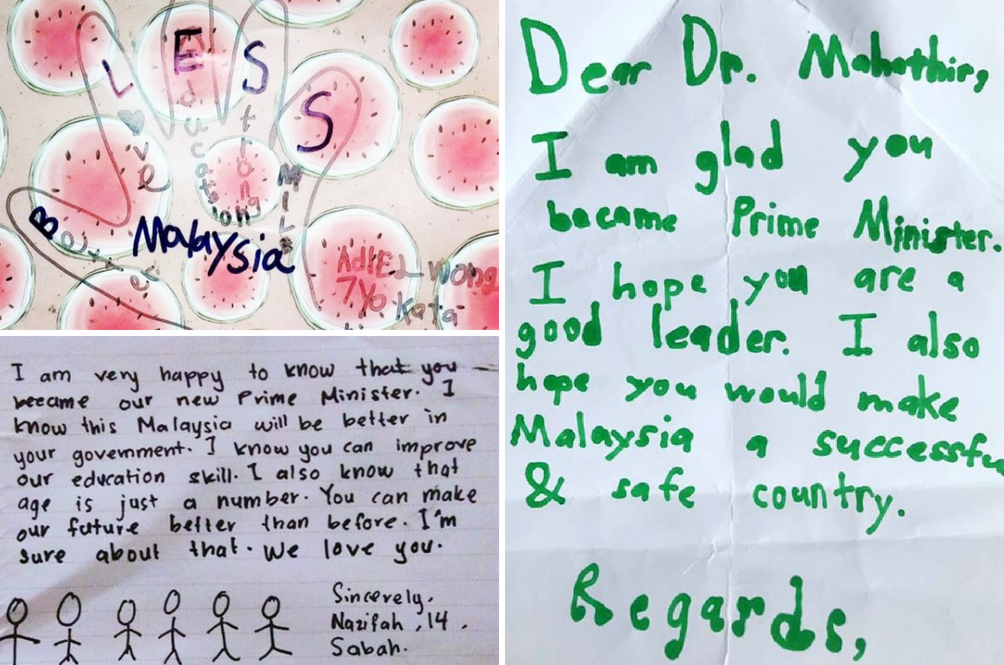 LESS
Love
Education
Strong
Better
Malaysia
Wong
7Yo. Kota
I am very happy to know that you
became our new Prime Minister. I
know this Malaysia will be better in
your government. I know you can improve
our education skill. I also know that
age is just a number. You can make
our future better than before. I'm
sure about that. We love you.
Sincerely,
Nazifah, 14,
Sabah.
Dear Dr. Mahathir,
I am glad you
became Prime Minister.
I hope you are a
good leader. I also
hope you would make
Malaysia a successfu
& safe country.
Regards,